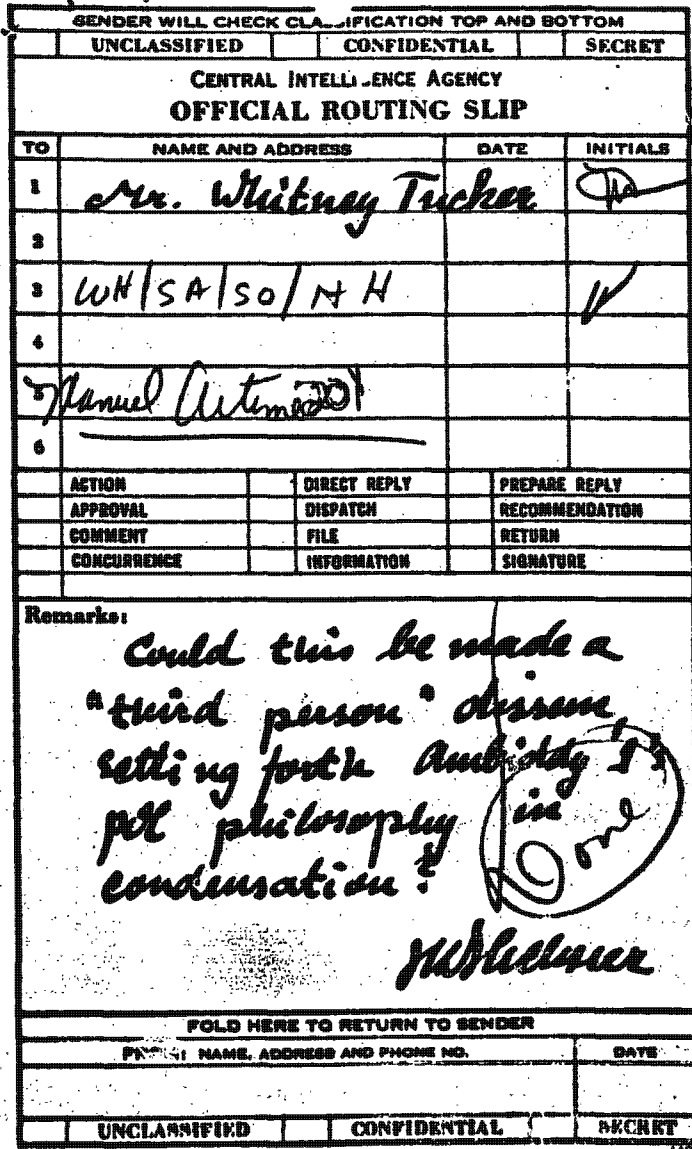 SENDER WILL CHECK CLASSIFICATION TOP AND BOTTOM
UNCLASSIFIED CONFIDENTIAL SECRET
CENTRAL INTELLIGENCE AGENCY
OFFICIAL ROUTING SLIP
TO NAME AND ADDRESS DATE INITIALS
1 Mr. Whitney Tucker
2
3 WH/SA/SO/NH
4
5 Manuel Artime
6
ACTION DIRECT REPLY PREPARE REPLY
APPROVAL DISPATCH RECOMMENDATION
COMMENT FILE RETURN
CONCURRENCE INFORMATION SIGNATURE
Remarks:
Could this be made a
"third person" dissem,
setting forth Ambiddy 1's
pol philosophy in
condensation?
Done
FOLD HERE TO RETURN TO SENDER
NAME, ADDRESS AND PHONE NO. DATE
UNCLASSIFIED CONFIDENTIAL SECRET